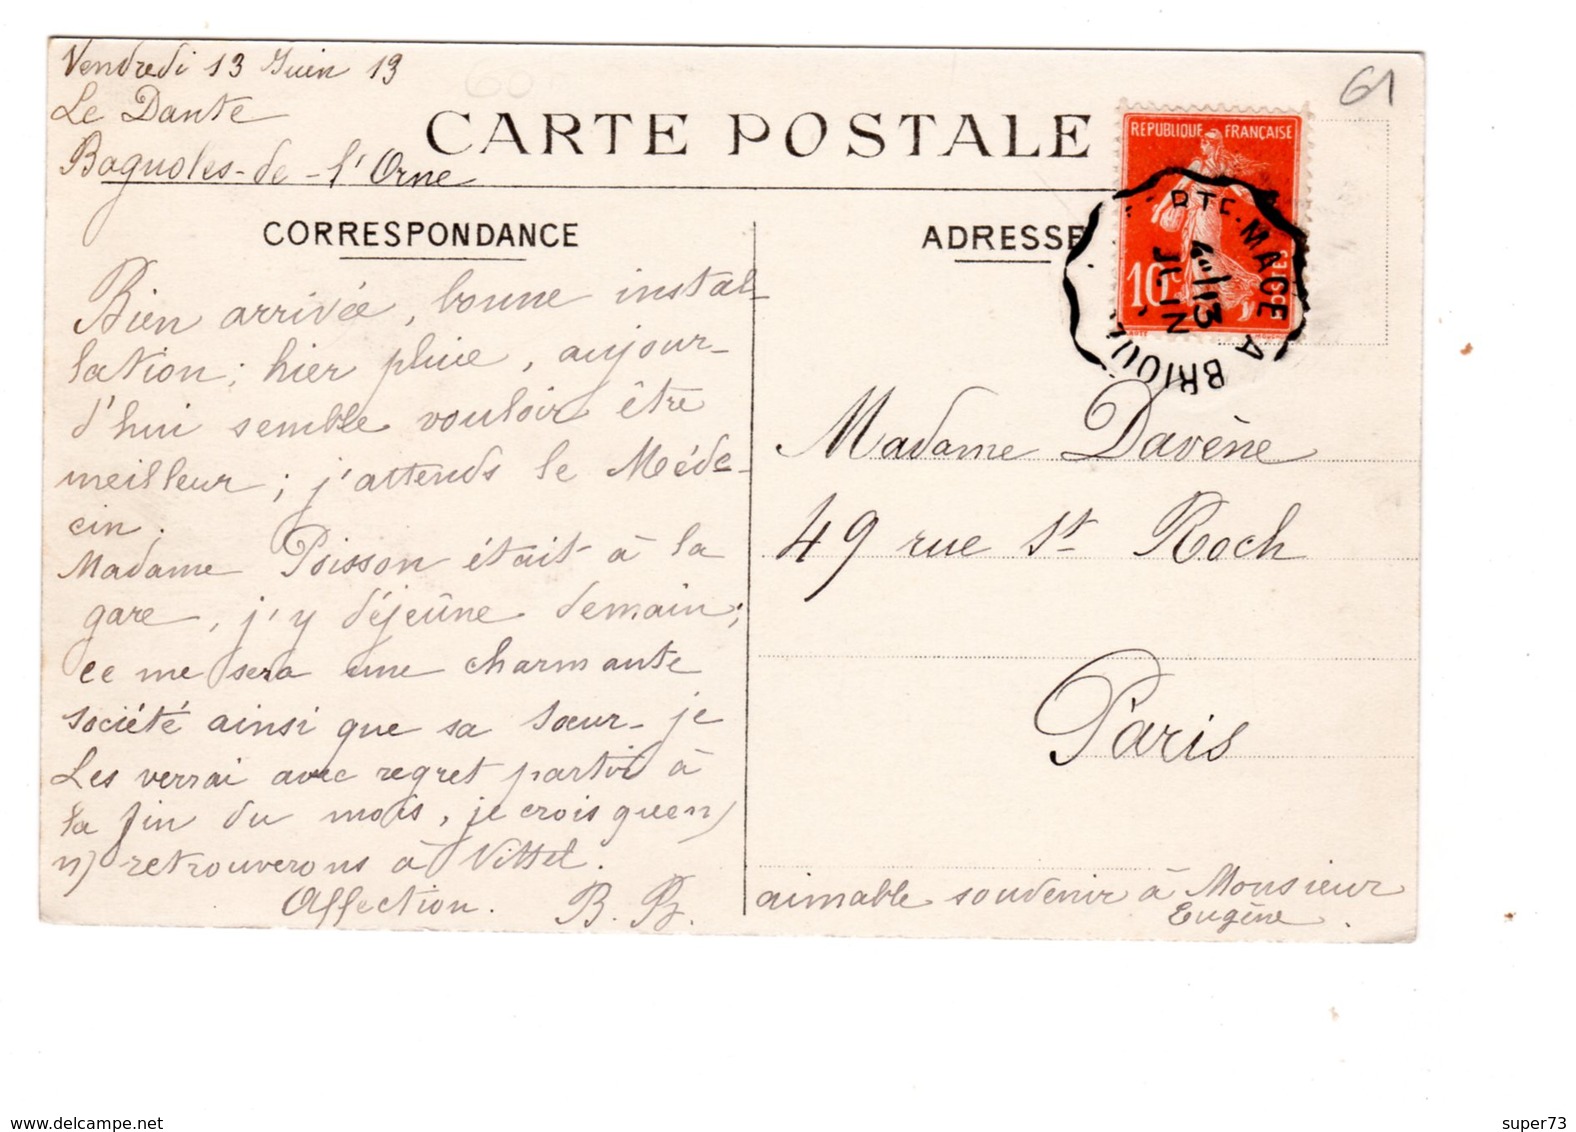 Vendredi 13 Juin 13
Le Dante
Bagnoles-de-l'Orne
61
CARTE POSTALE
CORRESPONDANCE
Bien arrivée, bonne instal-
lation; hier pluie, aujour-
d'hui semble vouloir être
meilleur; j'attends le Méde-
cin.
Madame Poisson était à la
gare, j'y déjeûne demain;
ce me sera une charmante
société ainsi que sa sœur - je
les verrai avec regret partir à
la fin du mois, je crois qu'en
n) retrouverons à Vittel.
Affection. B. B.
ADRESSE
REPUBLIQUE FRANÇAISE
10c
POSTES
RTE-MACE A BRIOU
13
JUIN
Madame Davène
49 rue St Roch
Paris
aimable souvenir à Monsieur
Eugène.
delcampe.net
super73